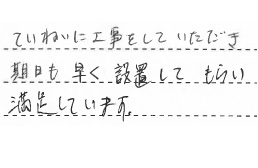 ていねいに工事をしていただき
期日も早く設置してもらい
満足しています。